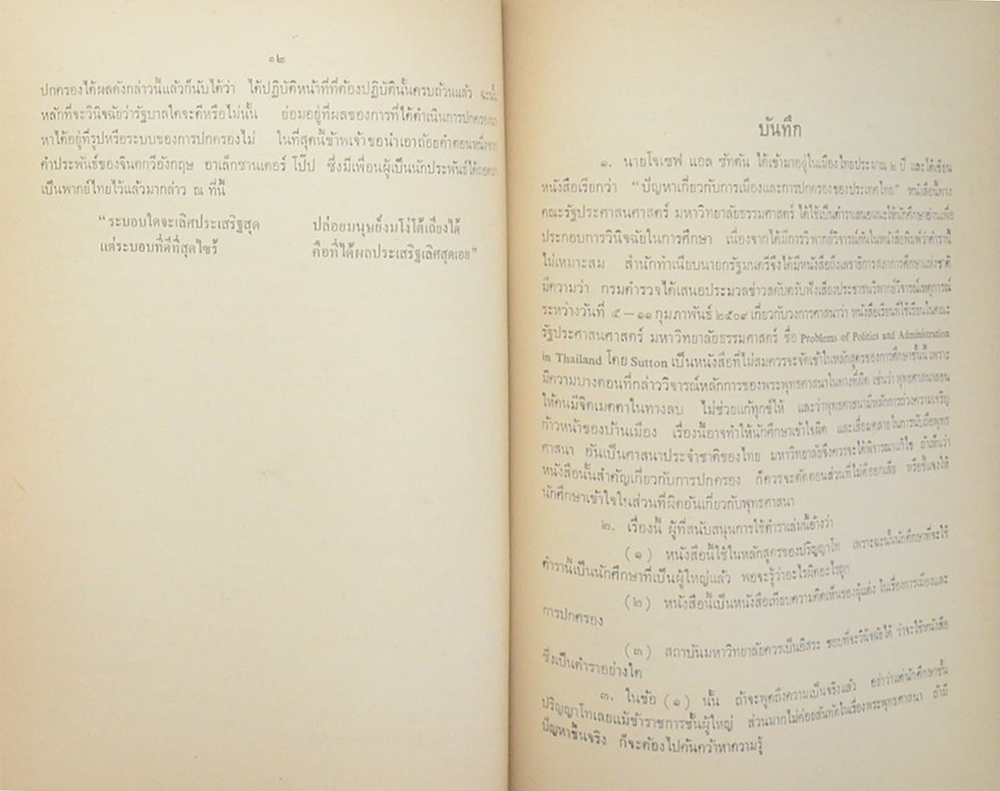 ๑๒
ปกครองได้ผลดังกล่าวนี้แล้วก็นับได้ว่า ได้ปฏิบัติหน้าที่ที่ต้องปฏิบัตินั้นครบถ้วนแล้ว ฉะนั้น
หลักที่จะวินิจฉัยว่ารัฐบาลใดจะดีหรือไม่นั้น ย่อมอยู่ที่ผลของการที่ได้ดำเนินการปกครองมา
หาได้อยู่ที่รูปหรือระบบของการปกครองไม่ ในที่สุดนี้ข้าพเจ้าขอนำเอาถ้อยคำตอนหนึ่งจาก
คำประพันธ์ของจินตกวีอังกฤษ อาเล็กซานเดอร์ โป๊ป ซึ่งมีเพื่อนผู้เป็นนักประพันธ์ได้ถอดมา
เป็นพากย์ไทยไว้แล้วมากล่าว ณ ที่นี้
“ระบอบใดจะเลิศประเสริฐสุด ปล่อยมนุษย์งมโง่โต้เถียงได้
แต่ระบอบที่ดีที่สุดไซร้ คือที่ได้ผลประเสริฐเลิศสุดเอย”
บันทึก
๑. นายโจเซฟ แอล ซัทตัน ได้เข้ามาอยู่ในเมืองไทยประมาณ ๒ ปี และได้เขียน
หนังสือเรียกว่า “ปัญหาเกี่ยวกับการเมืองและการปกครองของประเทศไทย” หนังสือนี้ทาง
คณะรัฐประศาสนศาสตร์ มหาวิทยาลัยธรรมศาสตร์ ได้ใช้เป็นตำราเสนอแนะให้นักศึกษาอ่านเพื่อ
ประกอบการวินิจฉัยในการศึกษา เนื่องจากได้มีการวิพากษ์วิจารณ์กันในหนังสือพิมพ์ว่าตำรานี้
ไม่เหมาะสม สำนักทำเนียบนายกรัฐมนตรีจึงได้มีหนังสือถึงเลขาธิการสภาการศึกษาแห่งชาติ
มีความว่า กรมตำรวจได้เสนอประมวลข่าวสดับตรับฟังเสียงประชาชนวิพากษ์วิจารณ์เหตุการณ์
ระหว่างวันที่ ๕ – ๑๑ กุมภาพันธ์ ๒๕๐๙ เกี่ยวกับวงการศาสนาว่า หนังสือเรียนที่ใช้เรียนในคณะ
รัฐประศาสนศาสตร์ มหาวิทยาลัยธรรมศาสตร์ ชื่อ Problems of Politics and Administration
in Thailand โดย Sutton เป็นหนังสือที่ไม่สมควรจะจัดเข้าในหลักสูตรของการศึกษาชั้นนี้ เพราะ
มีความบางตอนที่กล่าววิจารณ์หลักการของพระพุทธศาสนาในทางที่ผิด เช่นว่า พุทธศาสนาสอน
ให้คนมีจิตเมตตาในทางลบ ไม่ช่วยแก้ทุกข์ให้ และว่าพุทธศาสนามีหลักการถ่วงความเจริญ
ก้าวหน้าของบ้านเมือง เรื่องนี้อาจทำให้นักศึกษาเข้าใจผิด และเสื่อมคลายในการนับถือพุทธ
ศาสนา อันเป็นศาสนาประจำชาติของไทย มหาวิทยาลัยจึงควรจะได้พิจารณาแก้ไข ถ้าเห็นว่า
หนังสือนั้นสำคัญเกี่ยวกับการปกครอง ก็ควรจะตัดตอนส่วนที่ไม่ดีออกเสีย หรือชี้แจงให้
นักศึกษาเข้าใจในส่วนที่ผิดอันเกี่ยวกับพุทธศาสนา
๒. เรื่องนี้ ผู้ที่สนับสนุนการใช้ตำราเล่มนี้อ้างว่า
(๑) หนังสือนี้ใช้ในหลักสูตรของปริญญาโท เพราะฉะนั้นนักศึกษาที่จะใช้
ตำรานี้เป็นนักศึกษาที่เป็นผู้ใหญ่แล้ว พอจะรู้ว่าอะไรผิดอะไรถูก
(๒) หนังสือนี้เป็นหนังสือเทียบความคิดเห็นของผู้แต่ง ในเรื่องการเมืองและ
การปกครอง
(๓) สถาบันมหาวิทยาลัยควรเป็นอิสระ ชอบที่จะวินิจฉัยได้ ว่าจะใช้หนังสือ
ซึ่งเป็นตำราอย่างใด
๓. ในข้อ (๑) นั้น ถ้าจะพูดถึงความเป็นจริงแล้ว อย่าว่าแต่นักศึกษาชั้น
ปริญญาโทเลยแม้ข้าราชการชั้นผู้ใหญ่ ส่วนมากไม่ค่อยสันทัดในเรื่องพระพุทธศาสนา ถ้ามี
ปัญหาขึ้นจริง ก็จะต้องไปค้นคว้าหาความรู้